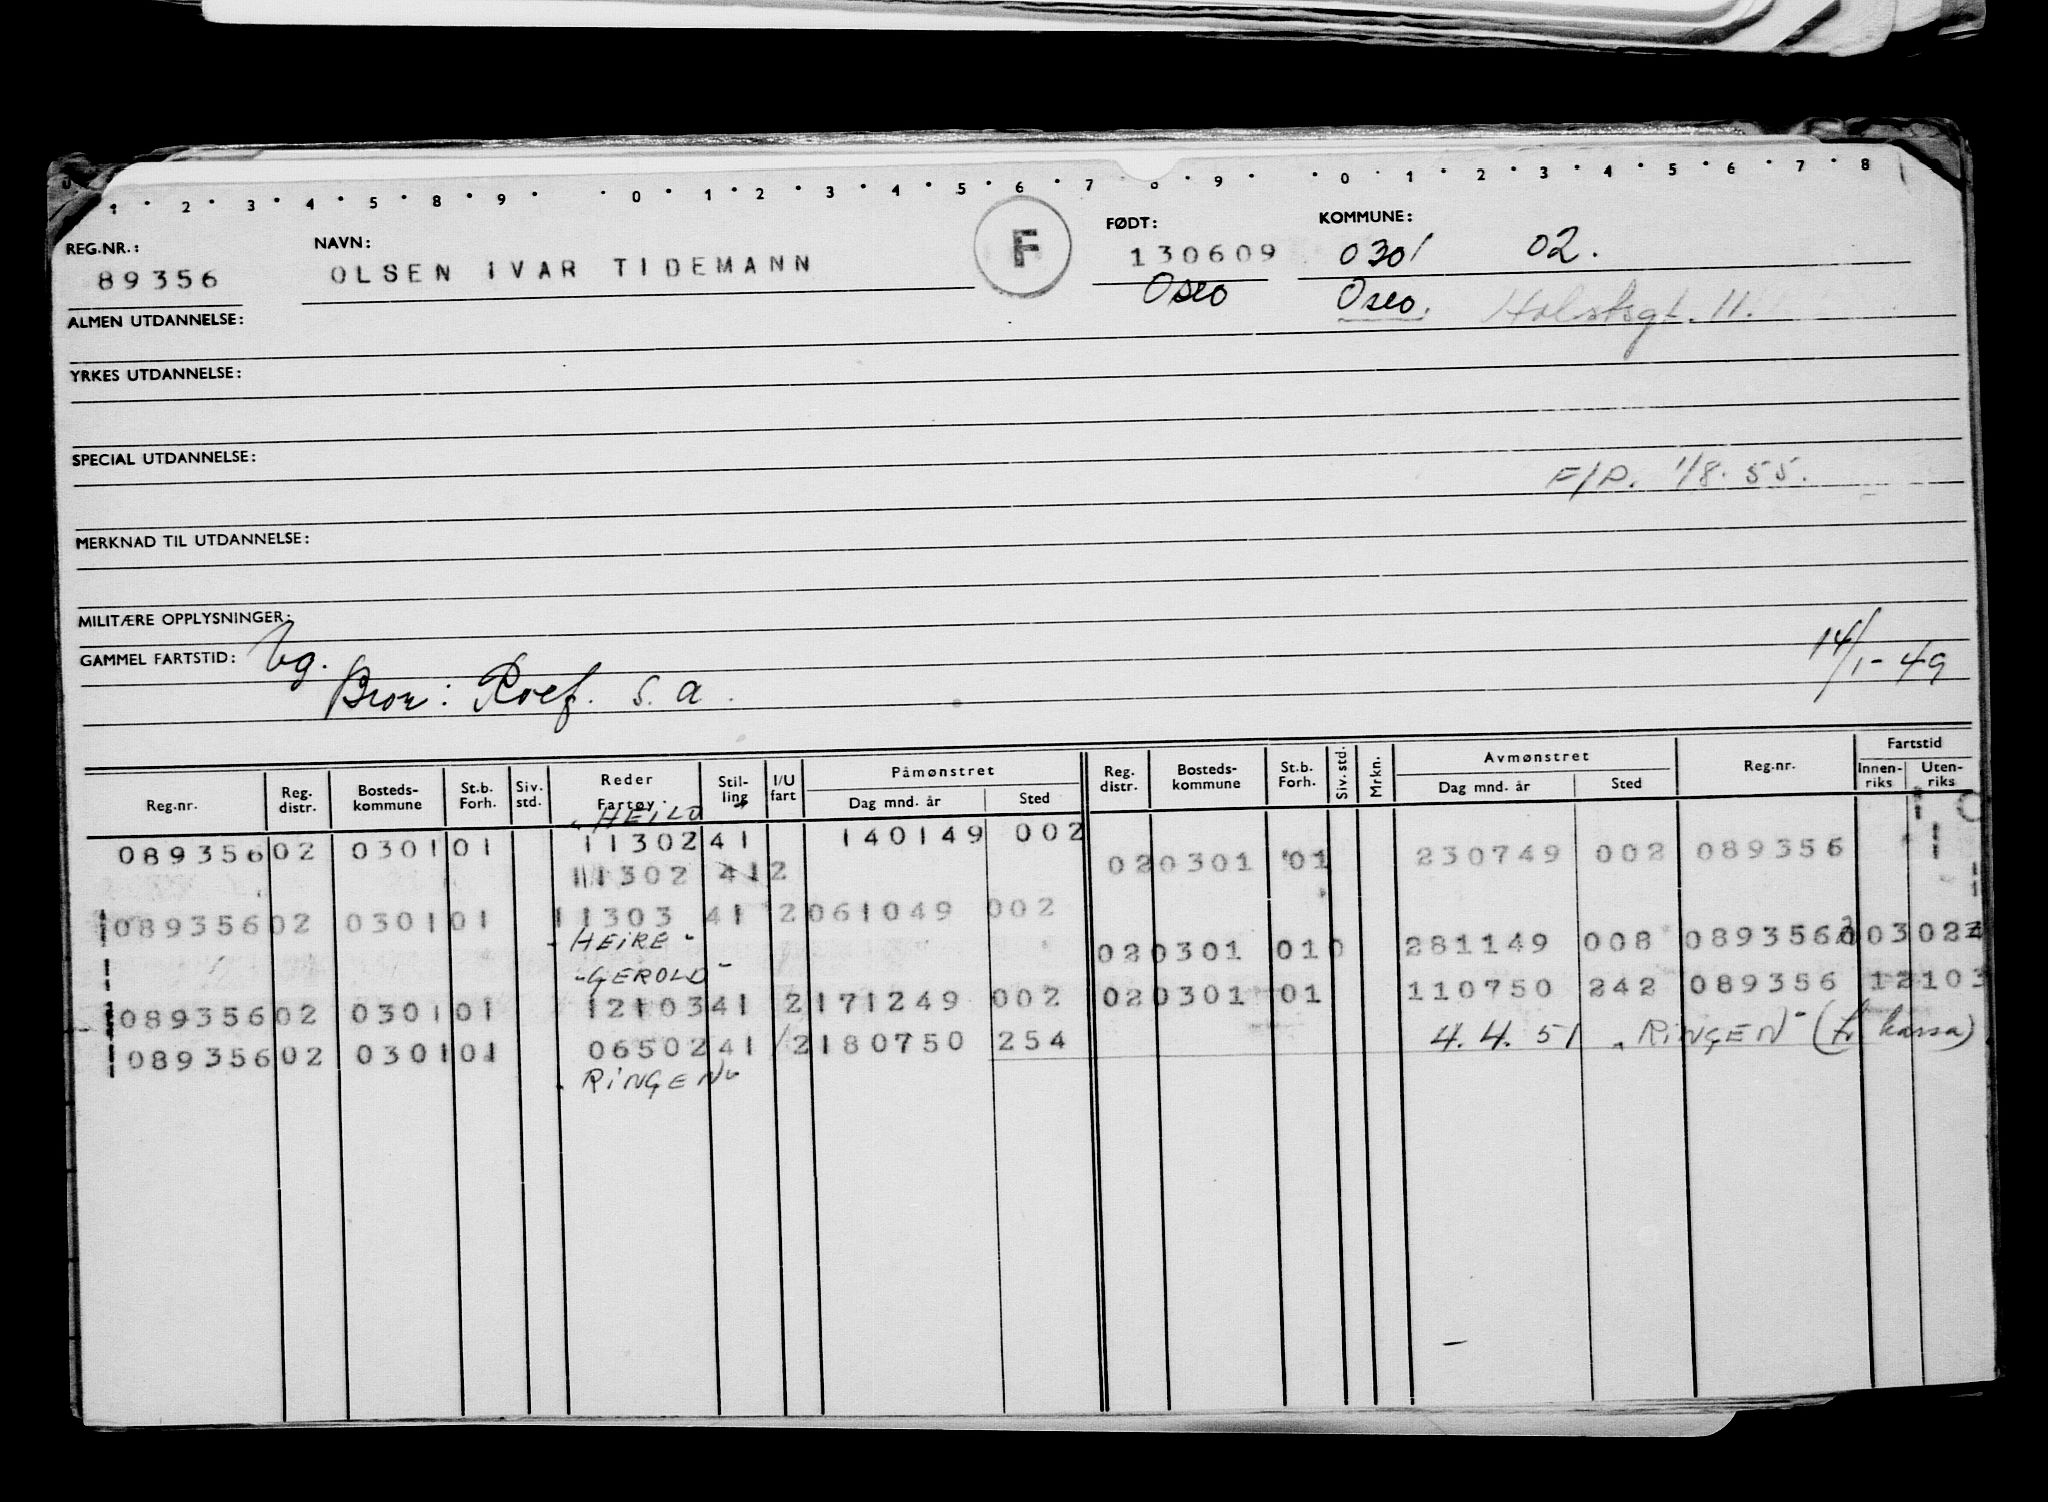 1 2 3 4 5 8 9 0 1 2 3 4 5 6 7 8 9 0 1 2 3 4 5 6 7 8
REG.NR.: NAVN: F FØDT: KOMMUNE:
89356 OLSEN IVAR TIDEMANN 130609 0301 02.
Oslo Oslo. Holstsgt. 11.
ALMEN UTDANNELSE:
YRKES UTDANNELSE:
SPECIAL UTDANNELSE:
F/P. 1/8.55.
MERKNAD TIL UTDANNELSE:
MILITÆRE OPPLYSNINGER:
GAMMEL FARTSTID: Ug. 14/1-49
Bror: Rolf. s.a.
Reg.nr. Reg. distr. Bosteds-kommune St.b. Forh. Siv. std. Reder Fartøy Stil-ling I/U fart Påmønstret Dag mnd. år Sted Reg. distr. Bosteds-kommune St.b. Forh. Siv. std. Mrkn. Avmønstret Dag mnd. år Sted Reg.nr. Fartstid Innen-riks Uten-riks
"HEILO"
089356 02 0301 01 11302 41 140149 002
11302 41 2 02 0301 01 230749 002 089356
089356 02 0301 01 11303 41 2 061049 002
"HEIRE" 02 0301 01 281149 008 089356
"GEROLD"
089356 02 0301 01 12103 41 2 171249 002 02 0301 01 110750 242 089356 12103
089356 02 0301 01 06502 41 2 180750 254 4.4.51 "RINGEN" (t. kassa)
"RINGEN"